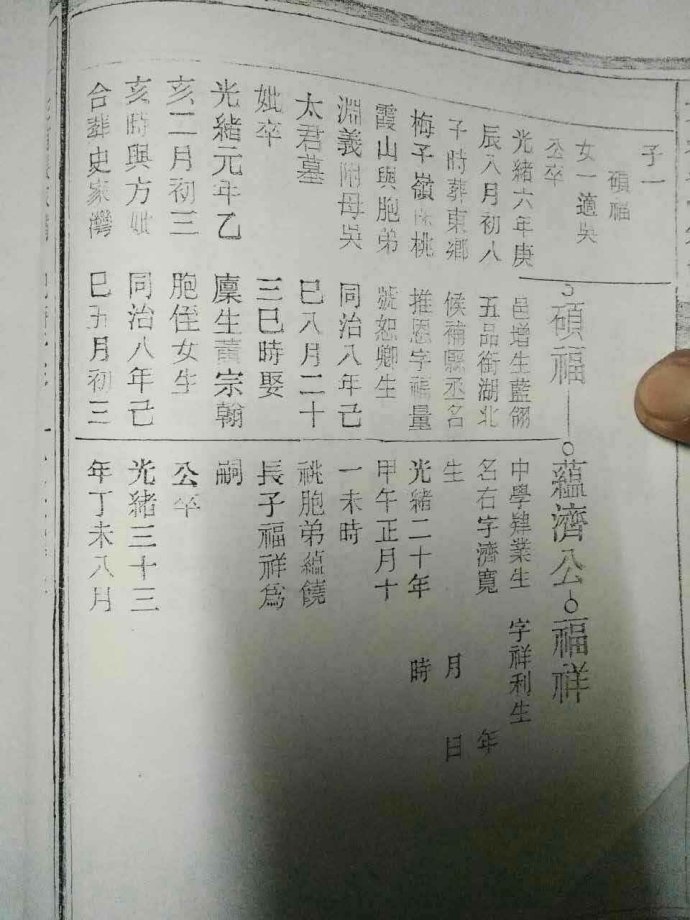 子一
碩福
女一適吳
公卒
光緒六年庚
辰八月初八
子時葬東鄉
梅子嶺 桃
霞山與胞弟
淵義附母吳
太君墓
妣卒
光緒元年乙
亥二月初三
亥時與方妣
合葬史家灣
碩福
邑增生藍翎
五品銜湖北
候補縣丞名
推恩字福量
號恕卿生
同治八年己
巳八月二十
三巳時娶
廩生黃宗翰
胞侄女生
同治八年己
巳五月初三
蘊濟公
中學肄業生
名右字濟寬
生
光緒二十年
甲午正月十
一未時
祧胞弟蘊饒
長子福祥爲
嗣
公卒
光緒三十三
年丁未八月
福祥
字祥利生
年
月 日
時